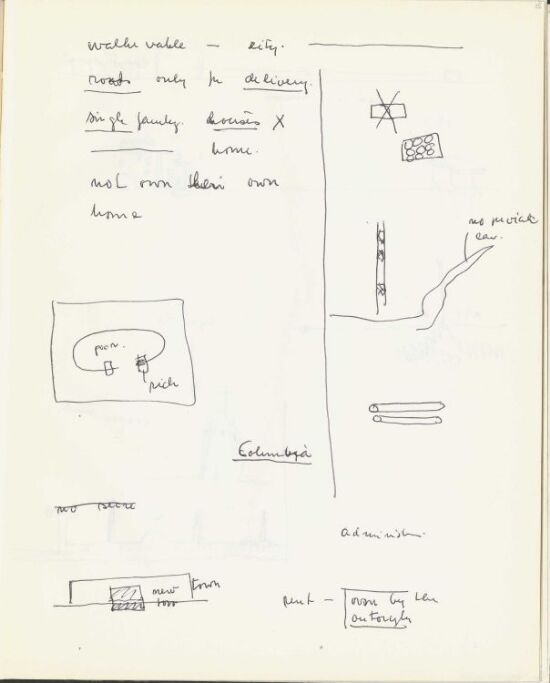 walkevable — city.
roads only for delivery.
single family. houses X
home.
not own their own
home
no private
car.
poor.
rich
Columbia
no
administ.
town
new
town
rent — own by the